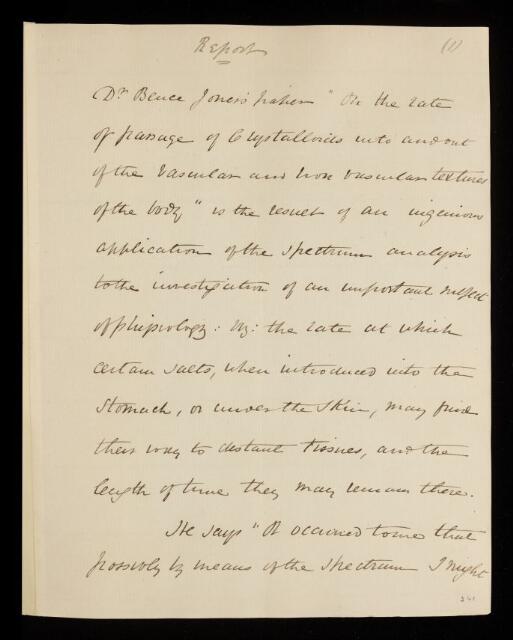 Report
(1)
Dr. Bence Jones's paper "On the rate
of passage of Crystalloids into and out
of the Vascular and Non Vascular textures
of the body" is the result of an ingenious
application of the Spectrum analysis
to the investigation of an important subject
of physiology: viz: the rate at which
certain salts, when introduced into the
Stomach, or under the skin, may find
their way to distant tissues, and the
length of time they may remain there.
He says "It occurred to me that
possibly by means of the Spectrum I might
341